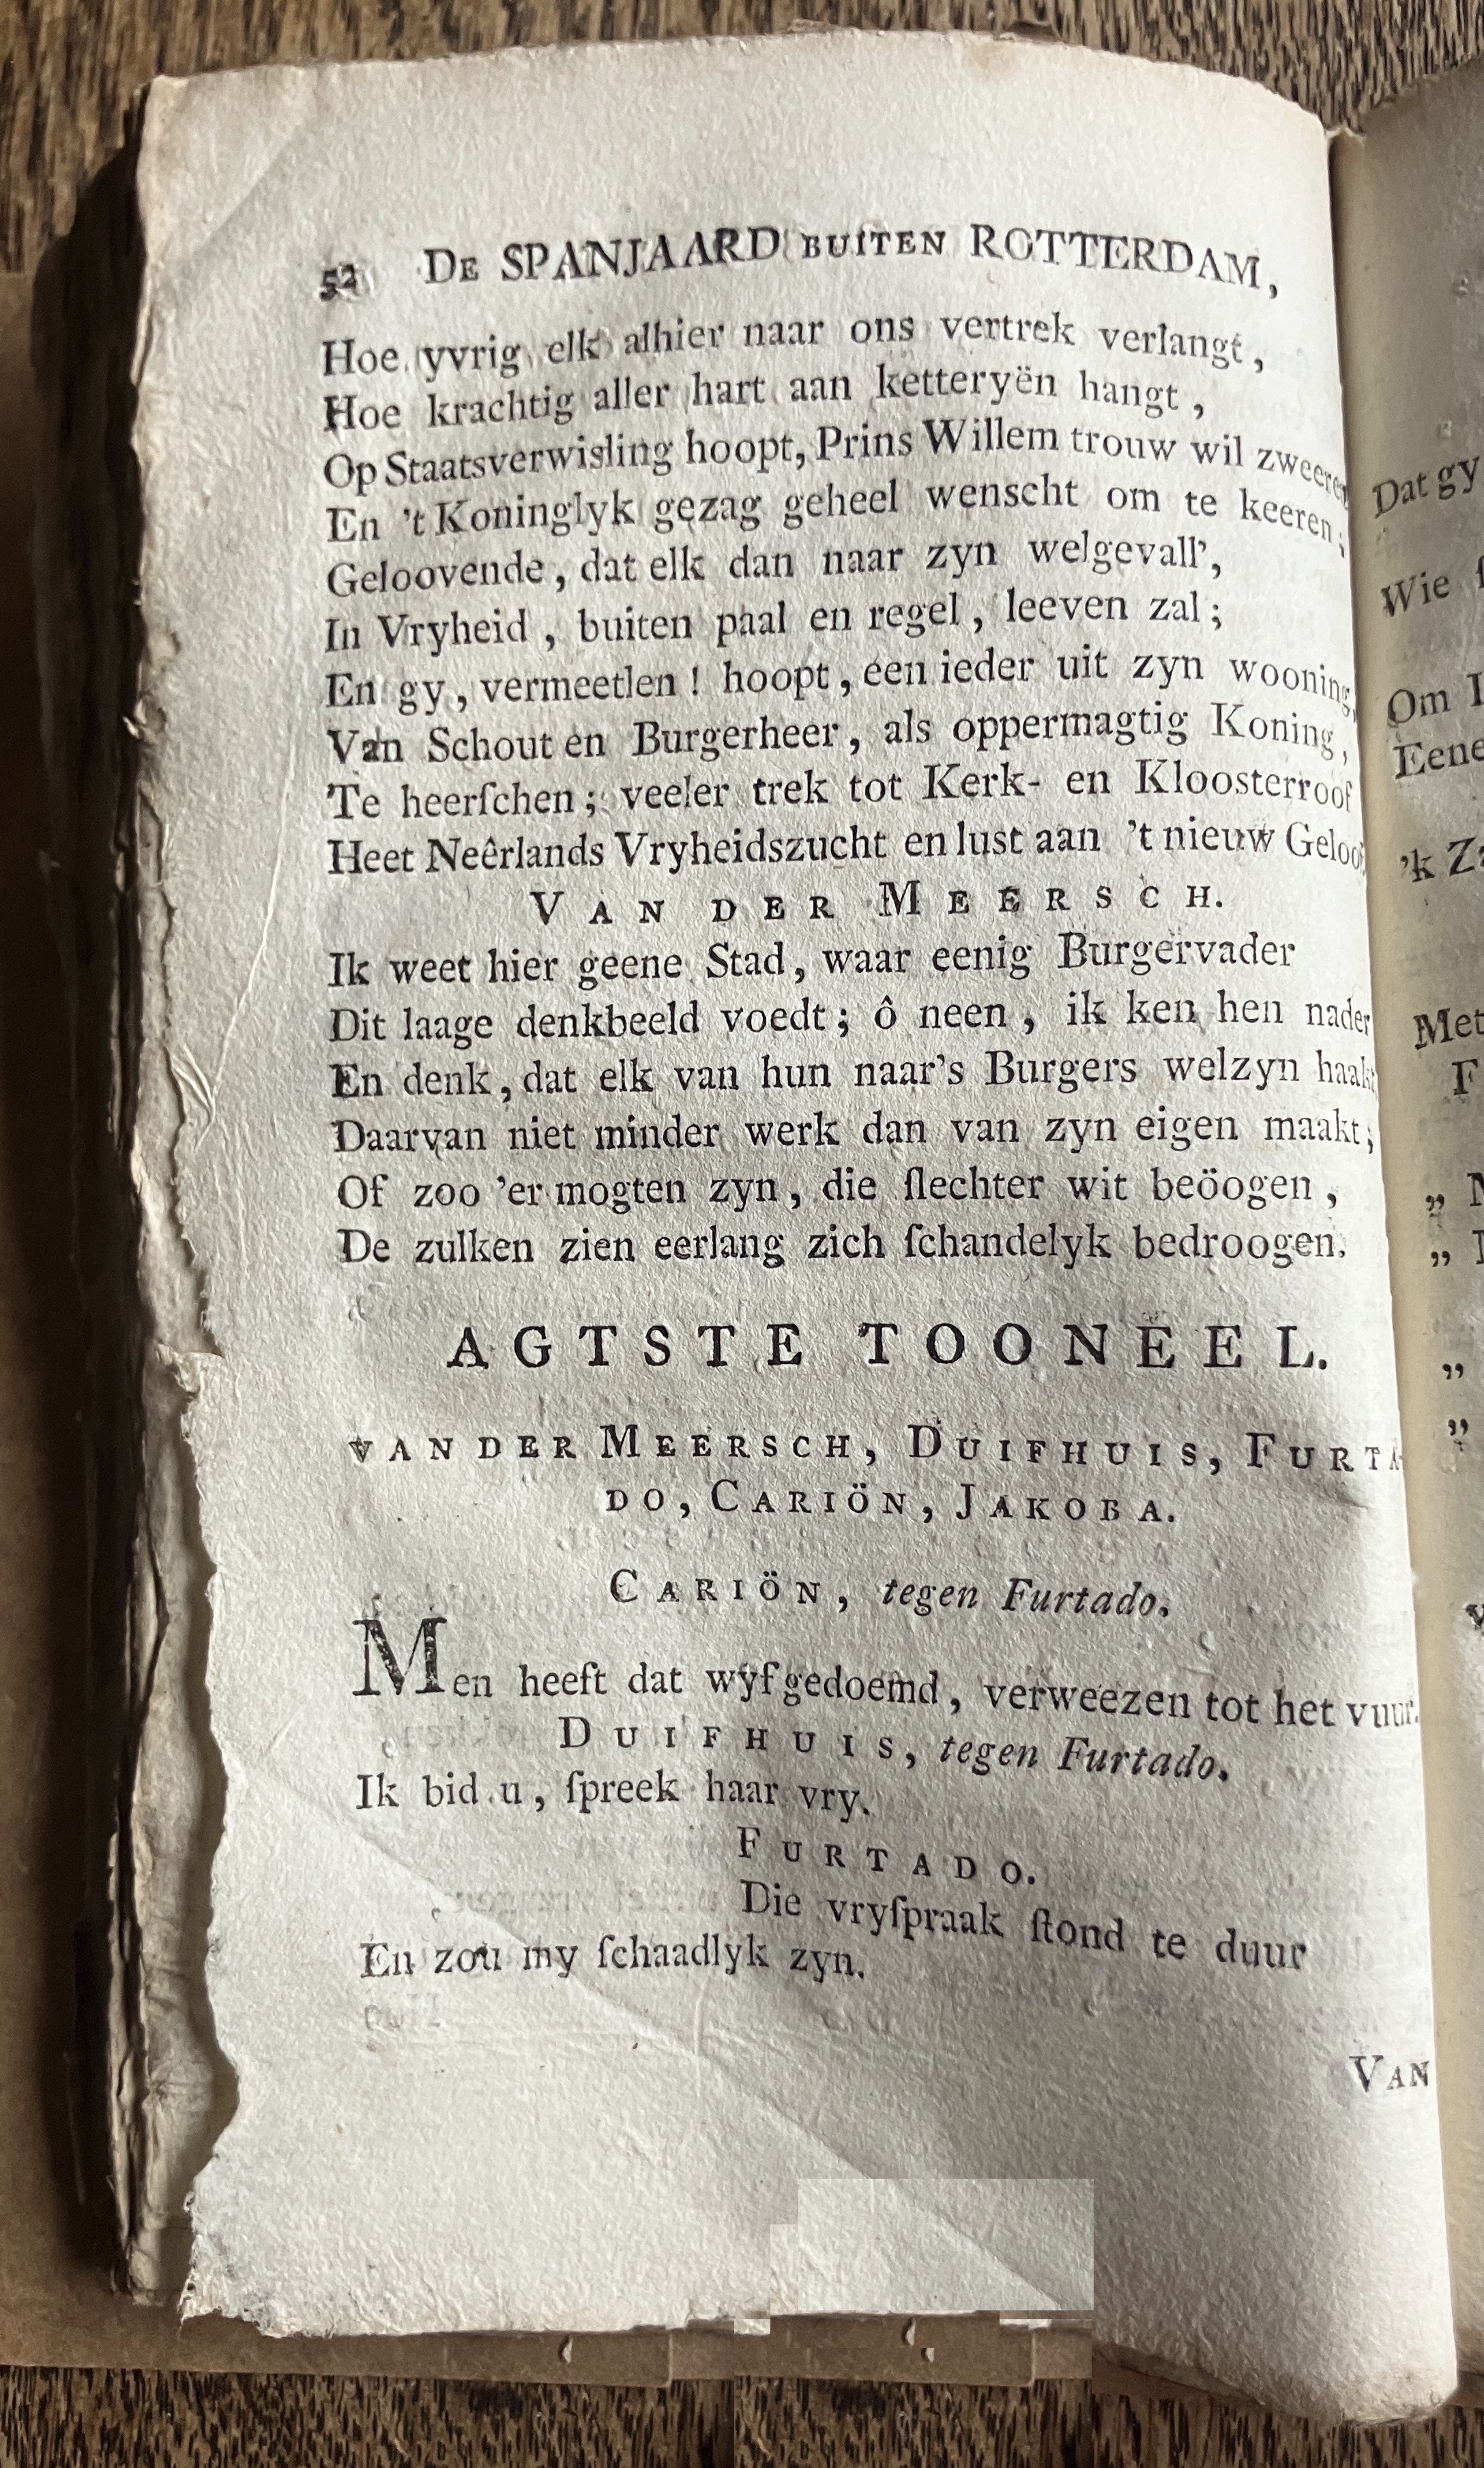 52 De SPANJAARD buiten ROTTERDAM,
Hoe yvrig elk alhier naar ons vertrek verlangt,
Hoe krachtig aller hart aan ketteryën hangt,
Op Staatsverwisling hoopt, Prins Willem trouw wil zweeren
En 't Koninglyk gezag geheel wenscht om te keeren;
Geloovende, dat elk dan naar zyn welgevall',
In Vryheid, buiten paal en regel, leeven zal;
En gy, vermeetlen! hoopt, een ieder uit zyn wooning,
Van Schout en Burgerheer, als oppermagtig Koning,
Te heerſchen; veeler trek tot Kerk- en Kloosterroof
Heet Neêrlands Vryheidszucht en lust aan 't nieuw Geloof.
VAN DER MEERSCH.
Ik weet hier geene Stad, waar eenig Burgervader
Dit laage denkbeeld voedt; ô neen, ik ken hen nader
En denk, dat elk van hun naar's Burgers welzyn haakt
Daarvan niet minder werk dan van zyn eigen maakt;
Of zoo 'er mogten zyn, die ſlechter wit beöogen,
De zulken zien eerlang zich ſchandelyk bedroogen.
AGTSTE TOONEEL.
VAN DER MEERSCH, DUIFHUIS, FURTA-
DO, CARIÖN, JAKOBA.
CARIÖN, tegen Furtado.
Men heeft dat wyf gedoemd, verweezen tot het vuur.
DUIFHUIS, tegen Furtado.
Ik bid u, ſpreek haar vry.
FURTADO.
Die vryſpraak ſtond te duur
En zou my ſchaadlyk zyn.
VAN
Dat gy
Wie
Om
Eene
'k
Met
F
„
„
„
„